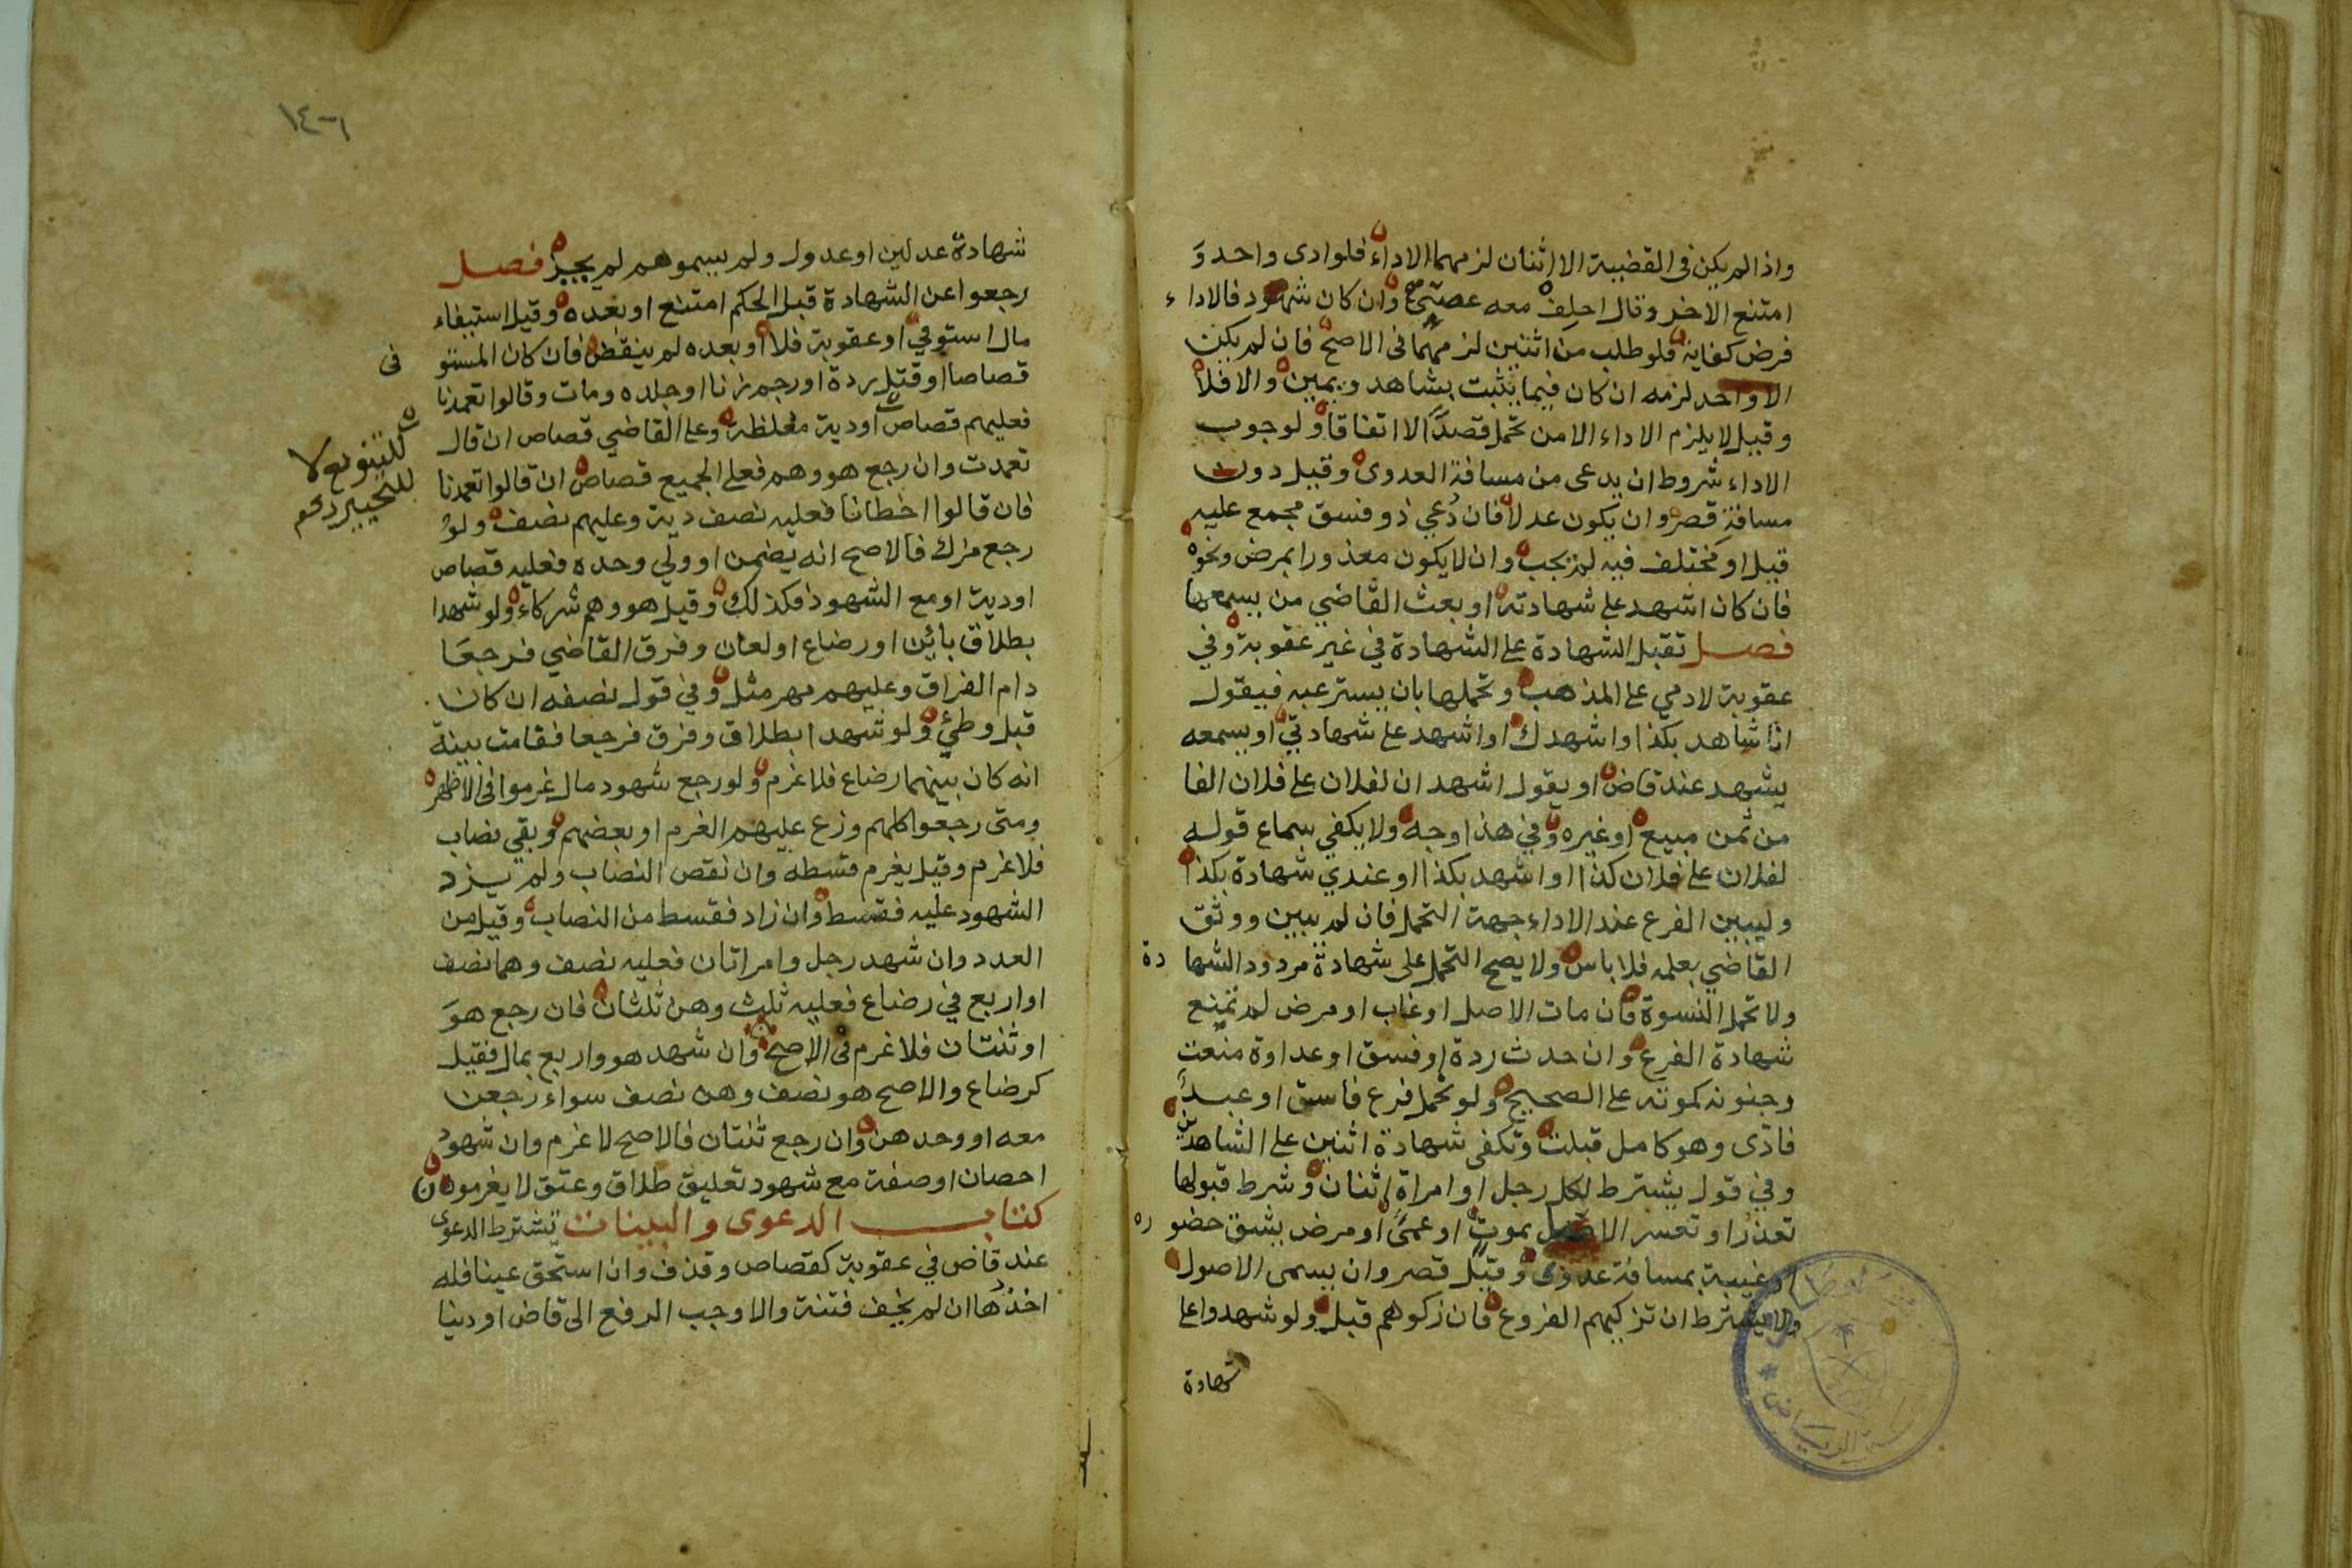 واذا لم يكن في القضية الا اثنان لزمهما الاداء فلو ادى واحد و
امتنع الاخر وقال احلف معه عصى وان كان شهود فالاداء
فرض كفاية فلو طلب من اثنين لزمهما في الاصح فان لم يكن
الا واحد لزمه ان كان فيما يثبت بشاهد ويمين والا فلا
وقيل لا يلزم الاداء الا من تحمل قصدًا لا اتفاقا ولوجوب
الاداء شروط ان يدعى من مسافة العدوى وقيل دون
مسافة قصر وان يكون عدلا فان دُعي ذو فسق مجمع عليه
قيل او مختلف فيه لم يجب وان لا يكون معذورا بمرض ونحوه
فان كان اشهد على شهادته او بعث القاضي من يسمعها
فصل تقبل الشهادة على الشهادة في غير عقوبة وفي
عقوبة لادمي على المذهب وتحملها بان يسترعيه فيقول
انا شاهد بكذا واشهدك او اشهد على شهادتي او يسمعه
يشهد عند قاض او يقول اشهد ان لفلان على فلان الفا
من ثمن مبيع او غيره وفي هذا وجه ولا يكفي سماع قوله
لفلان على فلان كذا او اشهد بكذا او عندي شهادة بكذا
وليبين الفرع عند الاداء جهة التحمل فان لم يبين ووثق
القاضي بعلمه فلا باس ولا يصح التحمل على شهادة مردود الشهادة
ولا تحمل النسوة فان مات الاصل او غاب او مرض لم تمنع
شهادة الفرع وان حدث ردة او فسق او عداوة منعت
وجنونه كموته على الصحيح ولو تحمل فرع فاسق او عبد
فادّى وهو كامل قبلت وتكفى شهادة اثنين على الشاهدين
وفي قول يشترط لكل رجل او امراة اثنان وشرط قبولها
تعذر او تعسر الاصل بموت او عمًى او مرض يشق حضوره
او غيبة بمسافة عدوى وقيل قصر وان يسمى الاصول
ولا يشترط ان تزكيهم الفروع فان زكوهم قبل ولو شهدوا على
شهادة
شهادة عدلين او عدول ولم يسموهم لم يجز فصل
رجعوا عن الشهادة قبل الحكم امتنع او بعده وقيل استيفاء
مال استوفي او عقوبة فلا او بعده لم ينقض فان كان المستو
في
قصاصا او قتل ردة او رجم زنا او جلده ومات وقالوا تعمدنا
فعليهم قصاص او دية مغلظة وعلى القاضي قصاص ان قال
للتنويع لا
للتخيير
تعمدت وان رجع هو وهم فعلى الجميع قصاص ان قالوا تعمدنا
فان قالوا اخطانا فعليه نصف دية وعليهم نصف ولو
رجع مزك فالاصح انه يضمن او ولي وحده فعليه قصاص
او دية او مع الشهود فكذلك وقيل هو وهم شركاء ولو شهدا
بطلاق بائن او رضاع او لعان وفرق القاضي فرجعا
دام الفراق وعليهم مهر مثل وفي قول نصفه ان كان
قبل وطئ ولو شهدا بطلاق وفرق فرجعا فقامت بينة
انه كان بينهما رضاع فلا غرم ولو رجع شهود مال غرموا في الاظهر
ومتى رجعوا كلهم وزع عليهم الغرم او بعضهم وبقي نصاب
فلا غرم وقيل يغرم قسطه وان نقص النصاب ولم يزد
الشهود عليه فقسط وان زاد فقسط من النصاب وقيل من
العدد وان شهد رجل وامراتان فعليه نصف وهما نصف
او اربع في رضاع فعليه ثلث وهن ثلثان فان رجع هو
او ثنتان فلا غرم في الاصح وان شهد هو واربع بمال فقيل
كرضاع والاصح هو نصف وهن نصف سواء رجعن
معه او وحدهن وان رجع ثنتان فالاصح لا غرم وان شهود
احصان او صفة مع شهود تعليق طلاق وعتق لا يغرمون
كتاب الدعوى والبينات تشترط الدعوى
عند قاض في عقوبة كقصاص وقذف وان استحق عينا فله
اخذها ان لم يخف فتنة والا وجب الرفع الى قاض او دينا